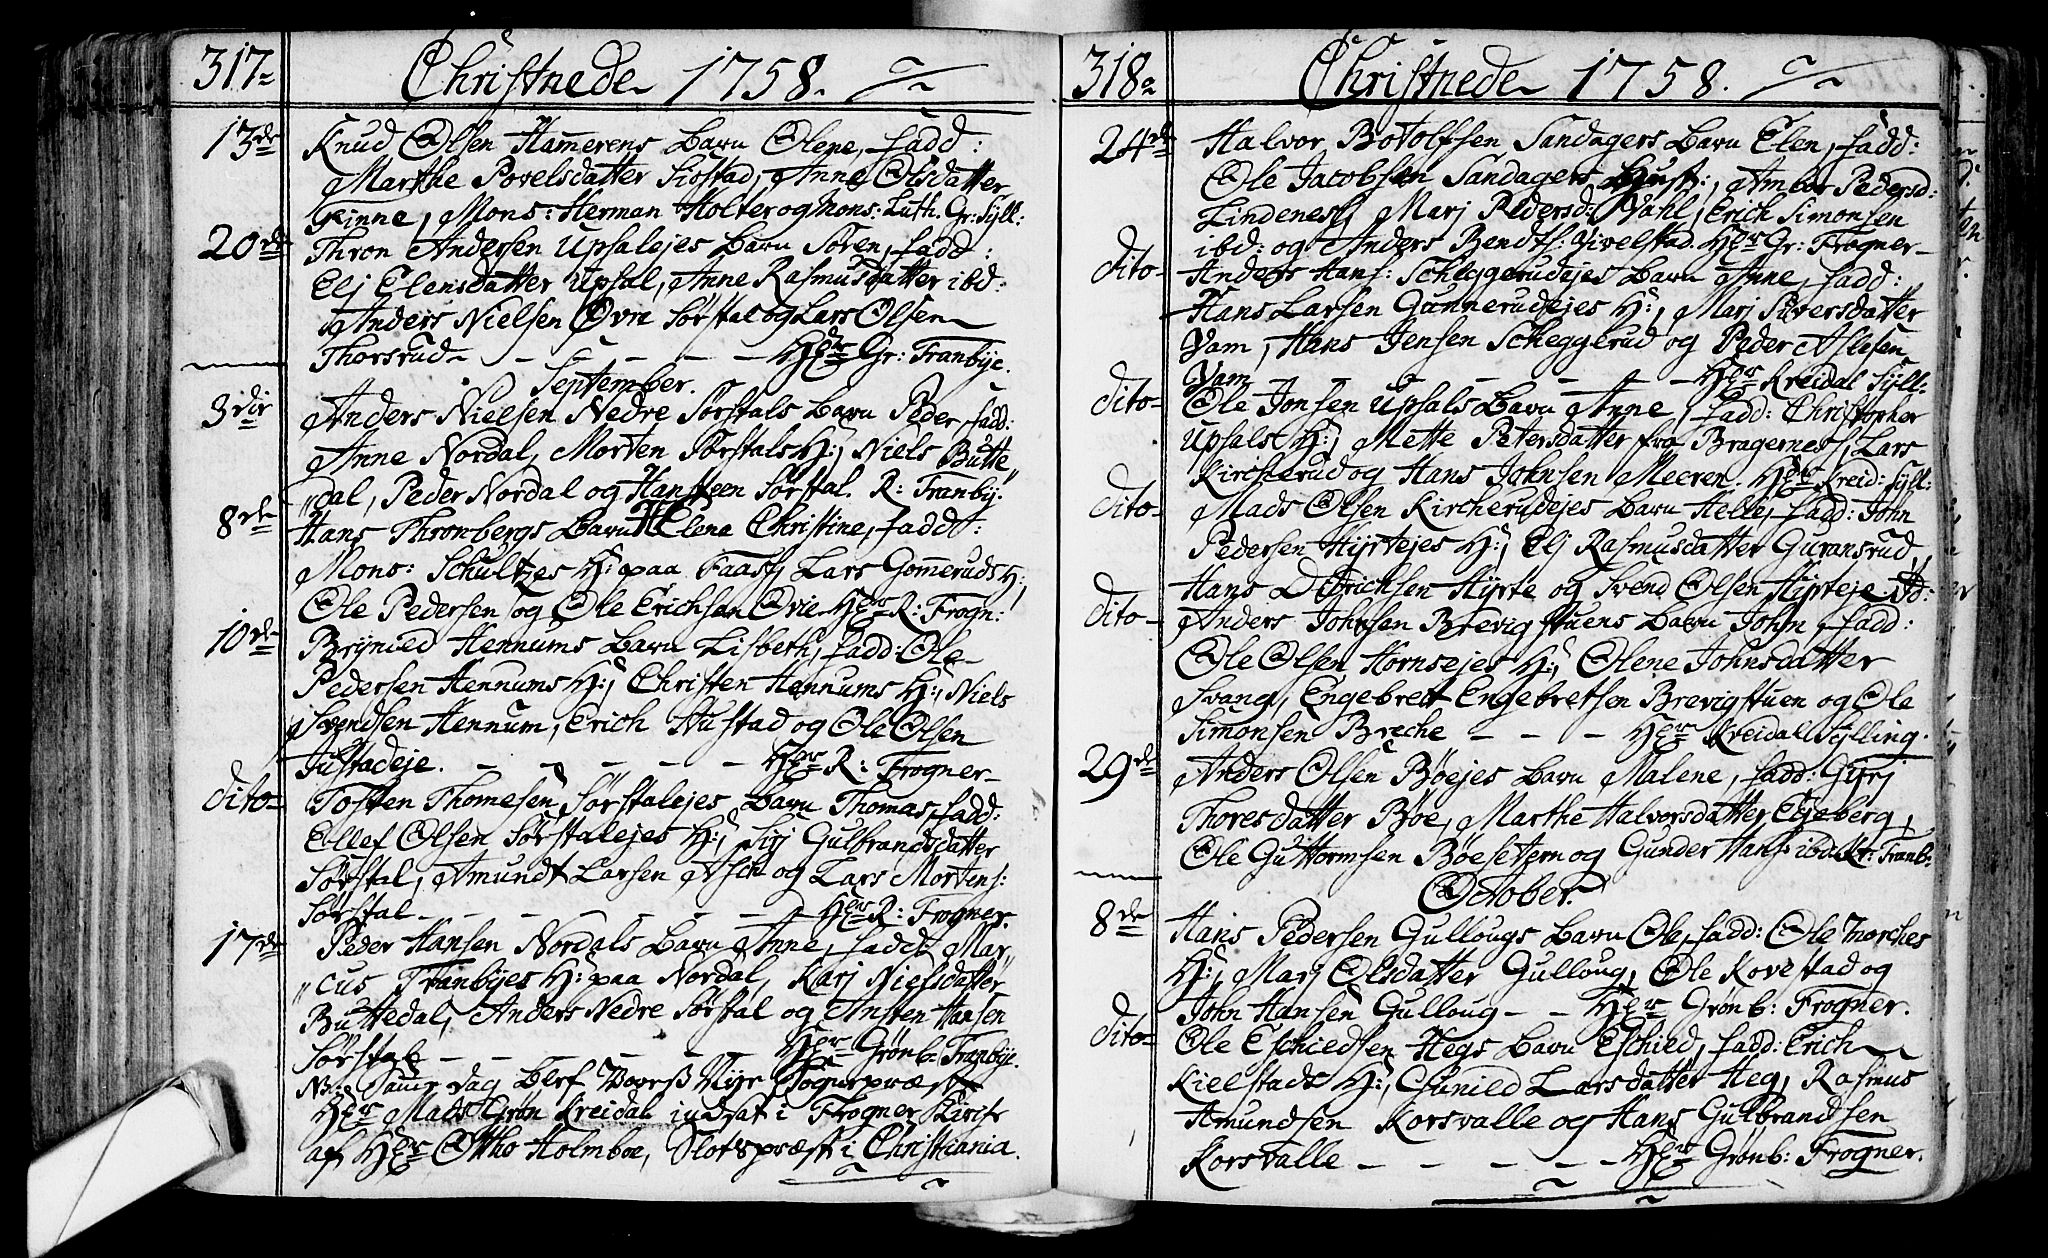 317
Christnede 1758.
13de Knud Olsen Hamerens barn Olene, fadd:
Marthe Povelsdatter Siøstad, Anne Olsdatter
Ginne, Mons: Herman Holter og Mons: Luth. Gr: Syll:
20de Thron Andersen Upsalejes barn Søren, fadd:
Elj Elensdatter Upsal, Anne Rasmusdatter ibd:
Anders Nielsen Øvre Sørstal og Lars Olsen
Thorsrud - - - - - Hr Gr: Tranbye.
September.
3die Anders Nielsen Nedre Sørstals barn Peder, fadd:
Anne Nordal, Morten Sørstals H:, Niels Butte
dal, Peder Nordal og Hans Steen Sørstal. R: Tranby.
8de Hans Thronbergs barn Helena Christine, fadd:
Mons: Schultzes H: paa Faast, Lars Gomeruds H:,
Ole Pedersen og Ole Erichsen Ovie. Hr R: Frogn:
10de Brynild Hennums barn Lisbeth, fadd: Ole
Pedersen Hennums H:, Christen Hennums H:, Niels
Svendsen Hennum, Erich Justad og Ole Olsen
Justadeje. - - - - - Hr R: Frogner
dito Tosten Thomesen Sørstalejes barn Thomas, fadd:
Ellef Olsen Sørstalejes H:, Sirj Gulbrandsdatter
Sørstal, Amund Larsen Asch og Lars Mortens:
Sørstal - - - - - Hr R: Frogner.
17de Peder Hansen Nordals barn Anne, fadd: Mar
cus Tranbyes H: paa Nordal, Karj Nielsdatter
Buttedal, Anders Nedre Sørstal og Ansten Hansen
Sørstal - - - - - Hr Grønb: Tranbye.
NB: Samme Dag blef Nye Sognepræst
Hr Mads Grøn Kreidal indsat i Frogner Kirke
af Hr Otto Holmboe, Slotspræst i Christiania.
318
Christnede 1758.
24de Halvor Botolfsen Sandagers barn Elen, fadd:
Ole Jacobsen Sandagers Hust:, Ambor Pedersd:
Lindenes, Marj Pedersd: Vahl, Erich Simonsen
ibd: og Anders Bendts: Vivelstad. Hr Gr: Frogner
dito Anders Hans: Scheggerudejes barn Anne, fadd:
Hans Larsen Gunnerudejes H:, Marj Siversdatter
Vam, Hans Jensen Scheggerud og Peder Aslesen
Vam - - - - - Hr Kreidal Syll:
dito Ole Jonsen Upsals barn Anne, fadd: Christopher
Upsals H:, Mette Petersdatter fra Bragernes, Lars
Kircherud og Hans Johnsen Meeren. Hr Kreid: Syll:
dito Mads Olsen Kircherudejes barn Helle, fadd: John
Pedersen Hyrtejes H:, Elj Rasmusdatter Guransrud,
Hans Didrichsen Hyrte og Svend Olsen Hyrteje.
dito Anders Johnsen Brevigstuens barn John, fadd:
Ole Olsen Hornsejes H:, Olene Johnsdatter
Svang, Engebrett Engebretsen Brevigstuen og Ole
Simonsen Breche - - - Hr Kreidal Sylling.
29de Anders Olsen Bøejes barn Malene, fadd: Gyrj
Thoresdatter Bøe, Marthe Halvorsdatter Egeberg,
Ole Guttormsen Bøesetern og Gunder Hans: ibd. Kr: Tranb:
October.
8de Hans Pedersen Gullougs barn Ole, fadd: Ole Morches
H:, Marj Olsdatter Gulloug, Ole Kovestad og
John Hansen Gulloug - - Hr Grønb: Frogner.
dito Ole Eschiedsen Hegs barn Eschied, fadd: Erich
Kielstads H:, Gunild Larsdatter Heg, Rasmus
Amundsen Korsvalle og Hans Gulbrandsen
Korsvalle - - - - - Hr Grønb: Frogner.